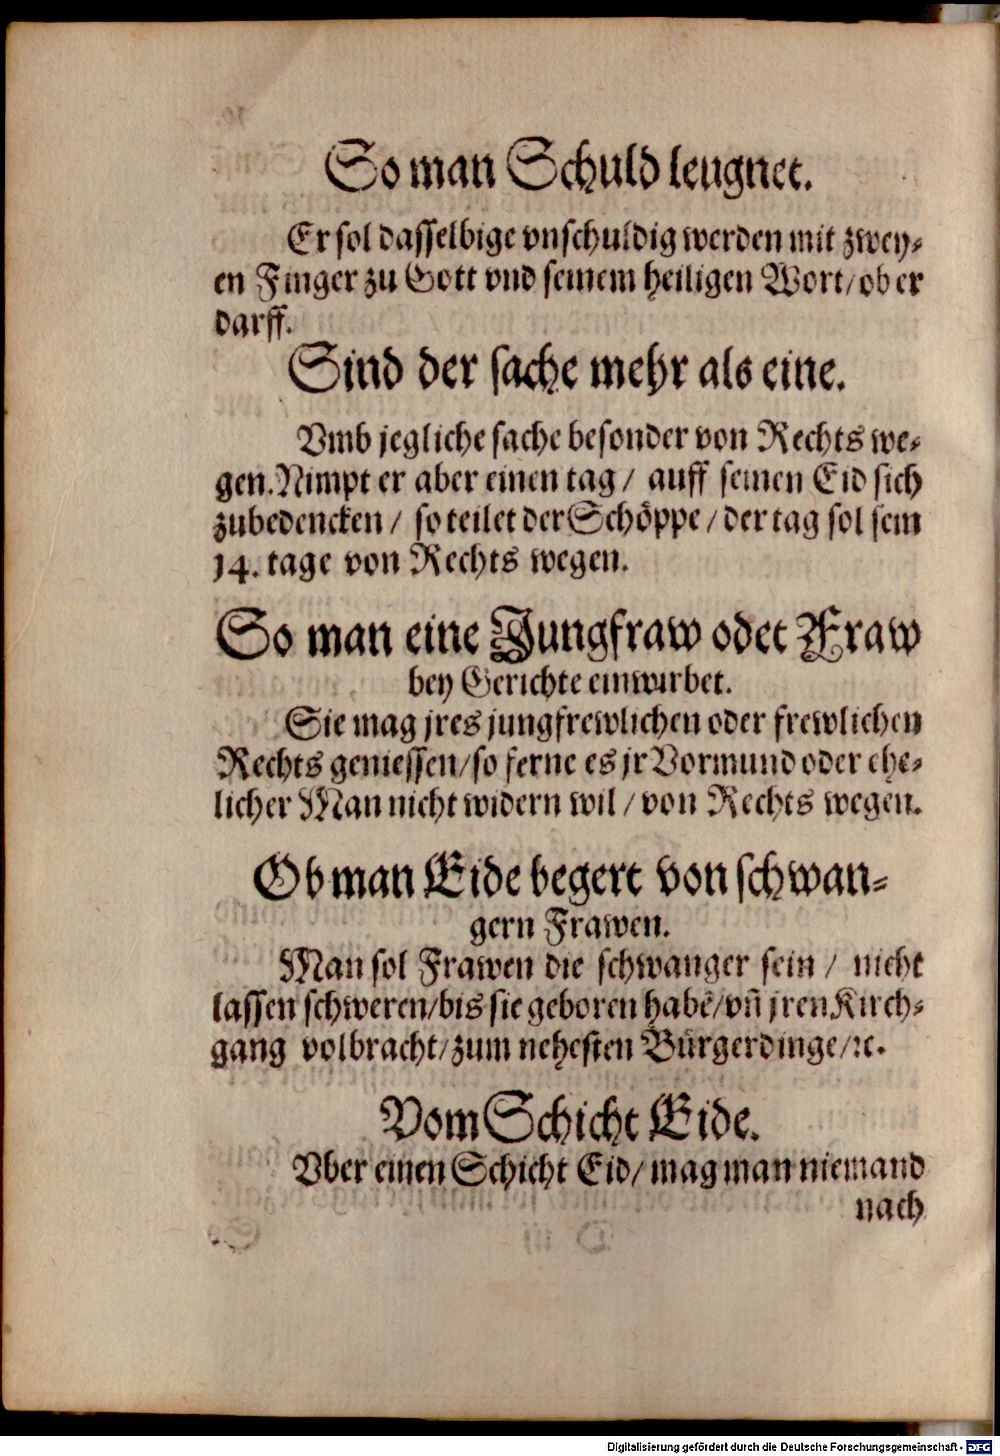 So man Schuld leugnet.
Er sol dasselbige vnschuldig werden mit zwey-
en Finger zu Gott vnd seinem heiligen Wort/ ob er
darff.
Sind der sache mehr als eine.
Vmb jegliche sache besonder von Rechts we-
gen. Nimpt er aber einen tag / auff seinen Eid sich
zubedencken / so teilet der Schöppe / der tag sol sein
14. tage von Rechts wegen.
So man eine Jungfraw odet Fraw
bey Gerichte einwirbet.
Sie mag jres jungfrewlichen oder frewlichen
Rechts geniessen/ so ferne es jr Vormund oder ehe-
licher Man nicht widern wil / von Rechts wegen.
Ob man Eide begert von schwan-
gern Frawen.
Man sol Frawen die schwanger sein / nicht
lassen schweren/ bis sie geboren habē/ vñ jren Kirch-
gang volbracht/ zum nehesten Bürgerdinge/ ꝛc.
Vom Schicht Eide.
Vber einen Schicht Eid/ mag man niemand
nach
Digitalisierung gefördert durch die Deutsche Forschungsgemeinschaft - DFG